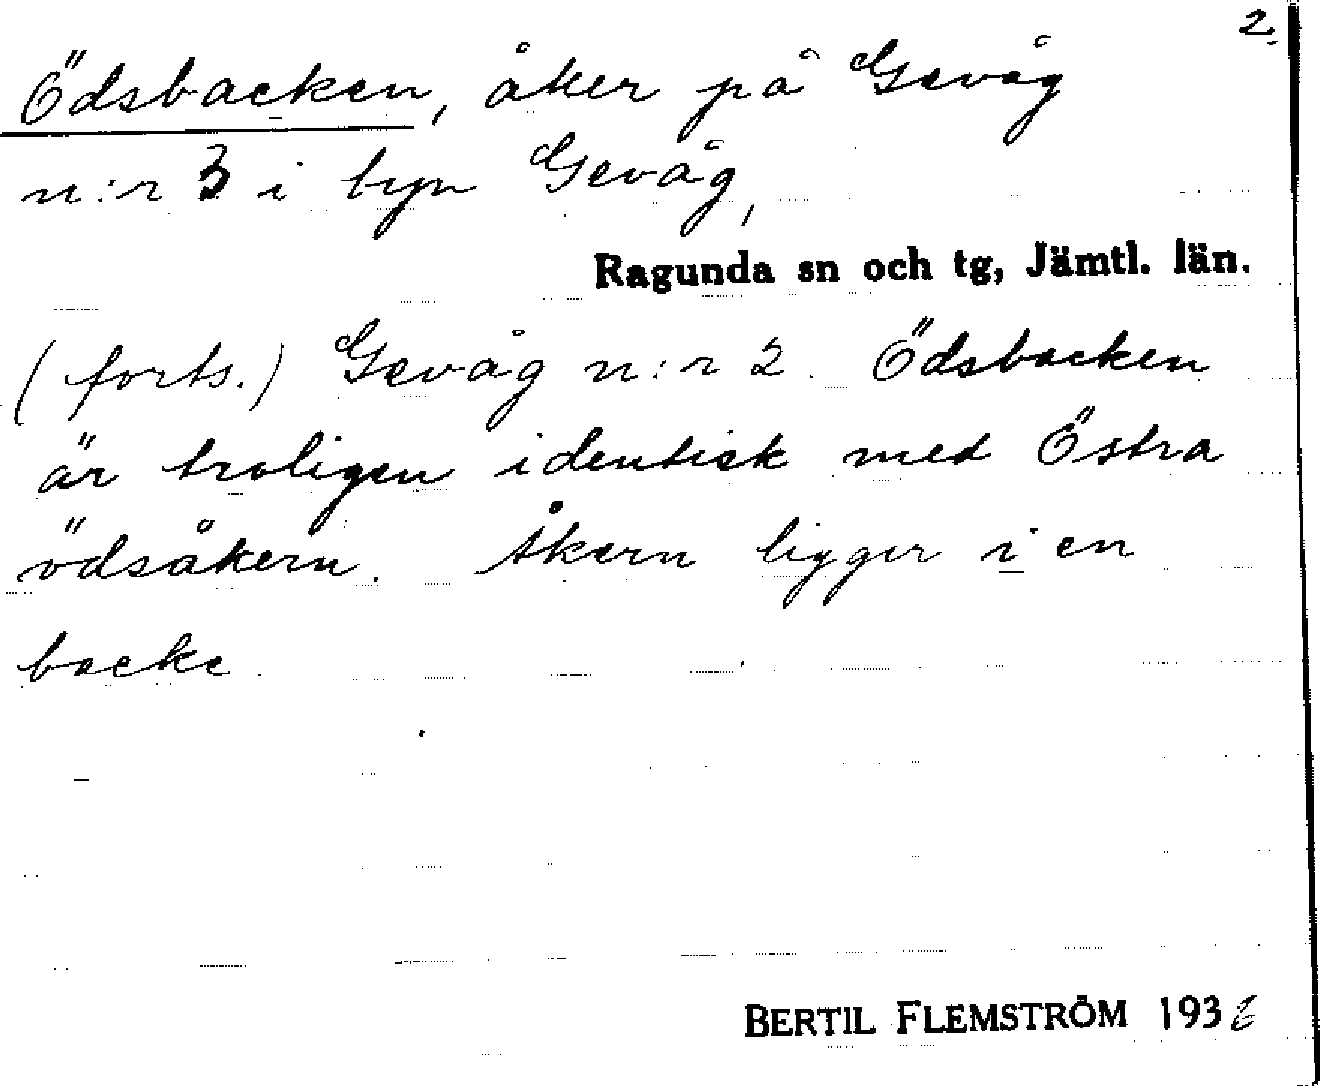 2.
Ödsbacken, åker på Gevåg
n:r 3 i byn Gevåg,
Ragunda sn och tg, Jämtl. län.
(forts.) Gevåg n:r 2. Ödsbacken
är troligen identisk med Östra
ödsåkern. Åkern ligger i en
backe.
BERTIL FLEMSTRÖM 1936